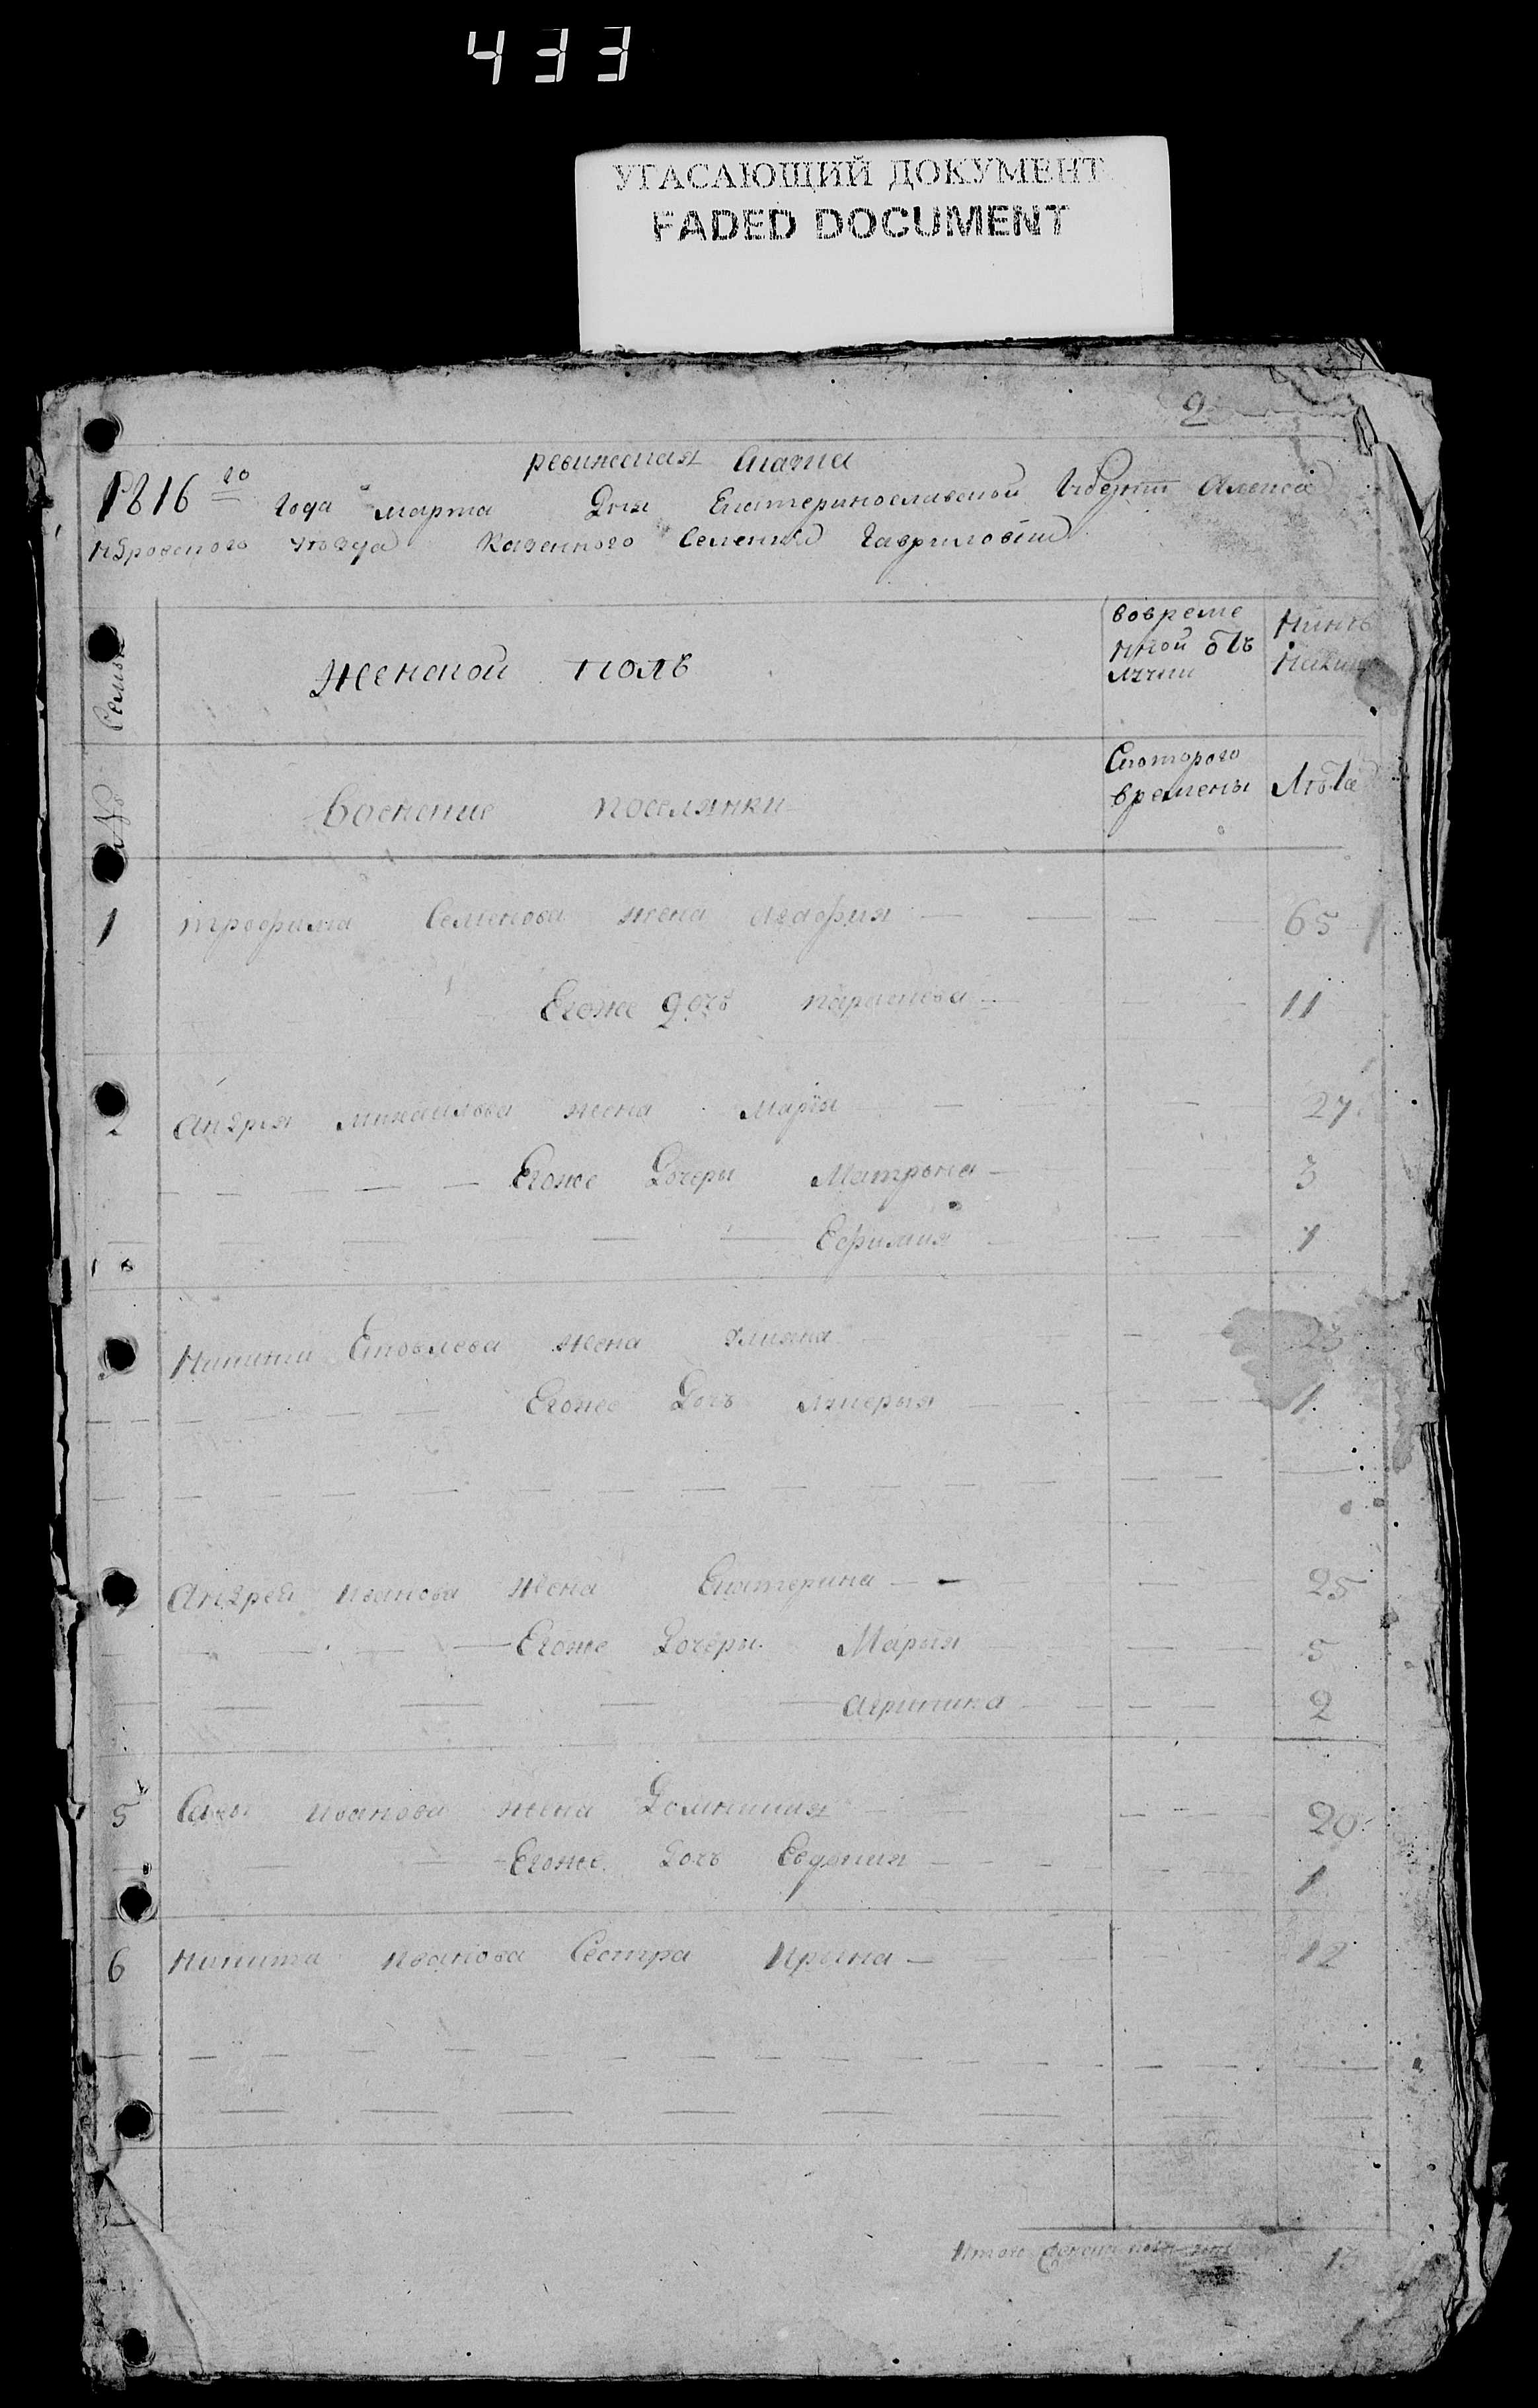 433
УГАСАЮЩИЙ ДОКУМЕНТ
FADED DOCUMENT
2
ревижская Скаска
1816го года марта Дня Екатеринославской Губернии Алекса
ндровского уѣзда Казенного Селения Гавриловки
Семьи
№
Женской полъ
вовреме
нной отъ
лучки
Нинѣ
Военние поселянки
Скоторого
времены
Лѣта
1 трофима Семенова жена Агафия 65
Егоже дочь параскева 11
2 Андрея михаилова жена Мария 27
Егоже Дочери Матрона 3
Ефимия 1
Никити Яковлева жена 23
Егоже Дочь 1
Андрей иванова жена Екатерина 25
Егоже Дочери Мария 5
Агрипина 2
5 Савы иванова жена Домникия 20
Егоже Дочь Евдокия 1
6 Никита иванова Сестра Ирина 12
Итого 13